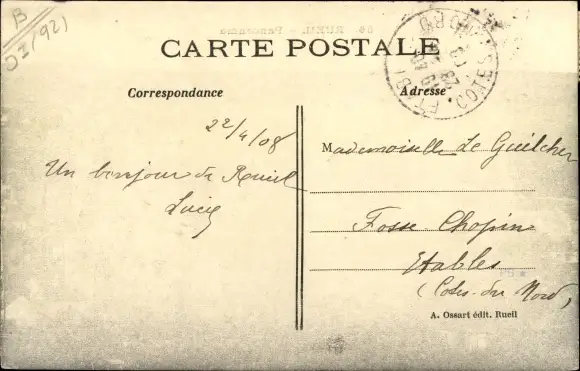 B
OI(92)
CARTE POSTALE
Correspondance
Adresse
22/4/08
Un bonjour de Rueil
Lucie
Mademoiselle Le Guilcher
Fosse Chopin
Etables
(Cotes-du Nord)
A. Ossart édit. Rueil